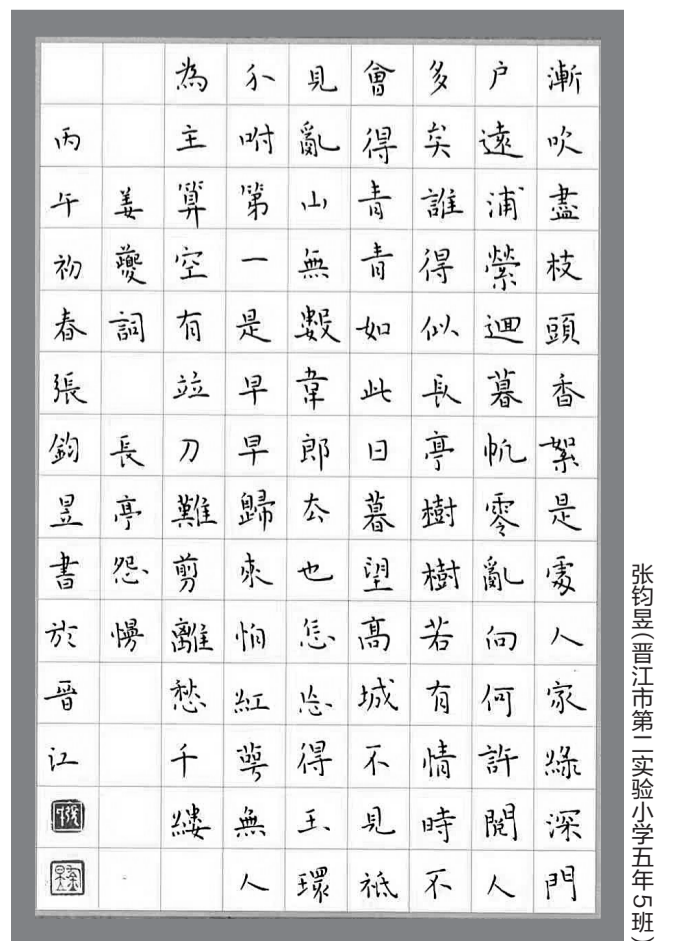 漸吹盡枝頭香絮是處人家綠深門
户遠浦縈迴暮帆零亂向何許閱人
多矣誰得似長亭樹樹若有情時不
會得青青如此日暮望高城不見祗
見亂山無數韋郎去也怎忘得玉環
分咐第一是早早歸來怕紅萼無人
為主算空有竝刀難剪離愁千縷
姜夔詞 長亭怨慢
丙午初春張鈞昱書於晉江
张钧昱(晋江市第二实验小学五年5班)